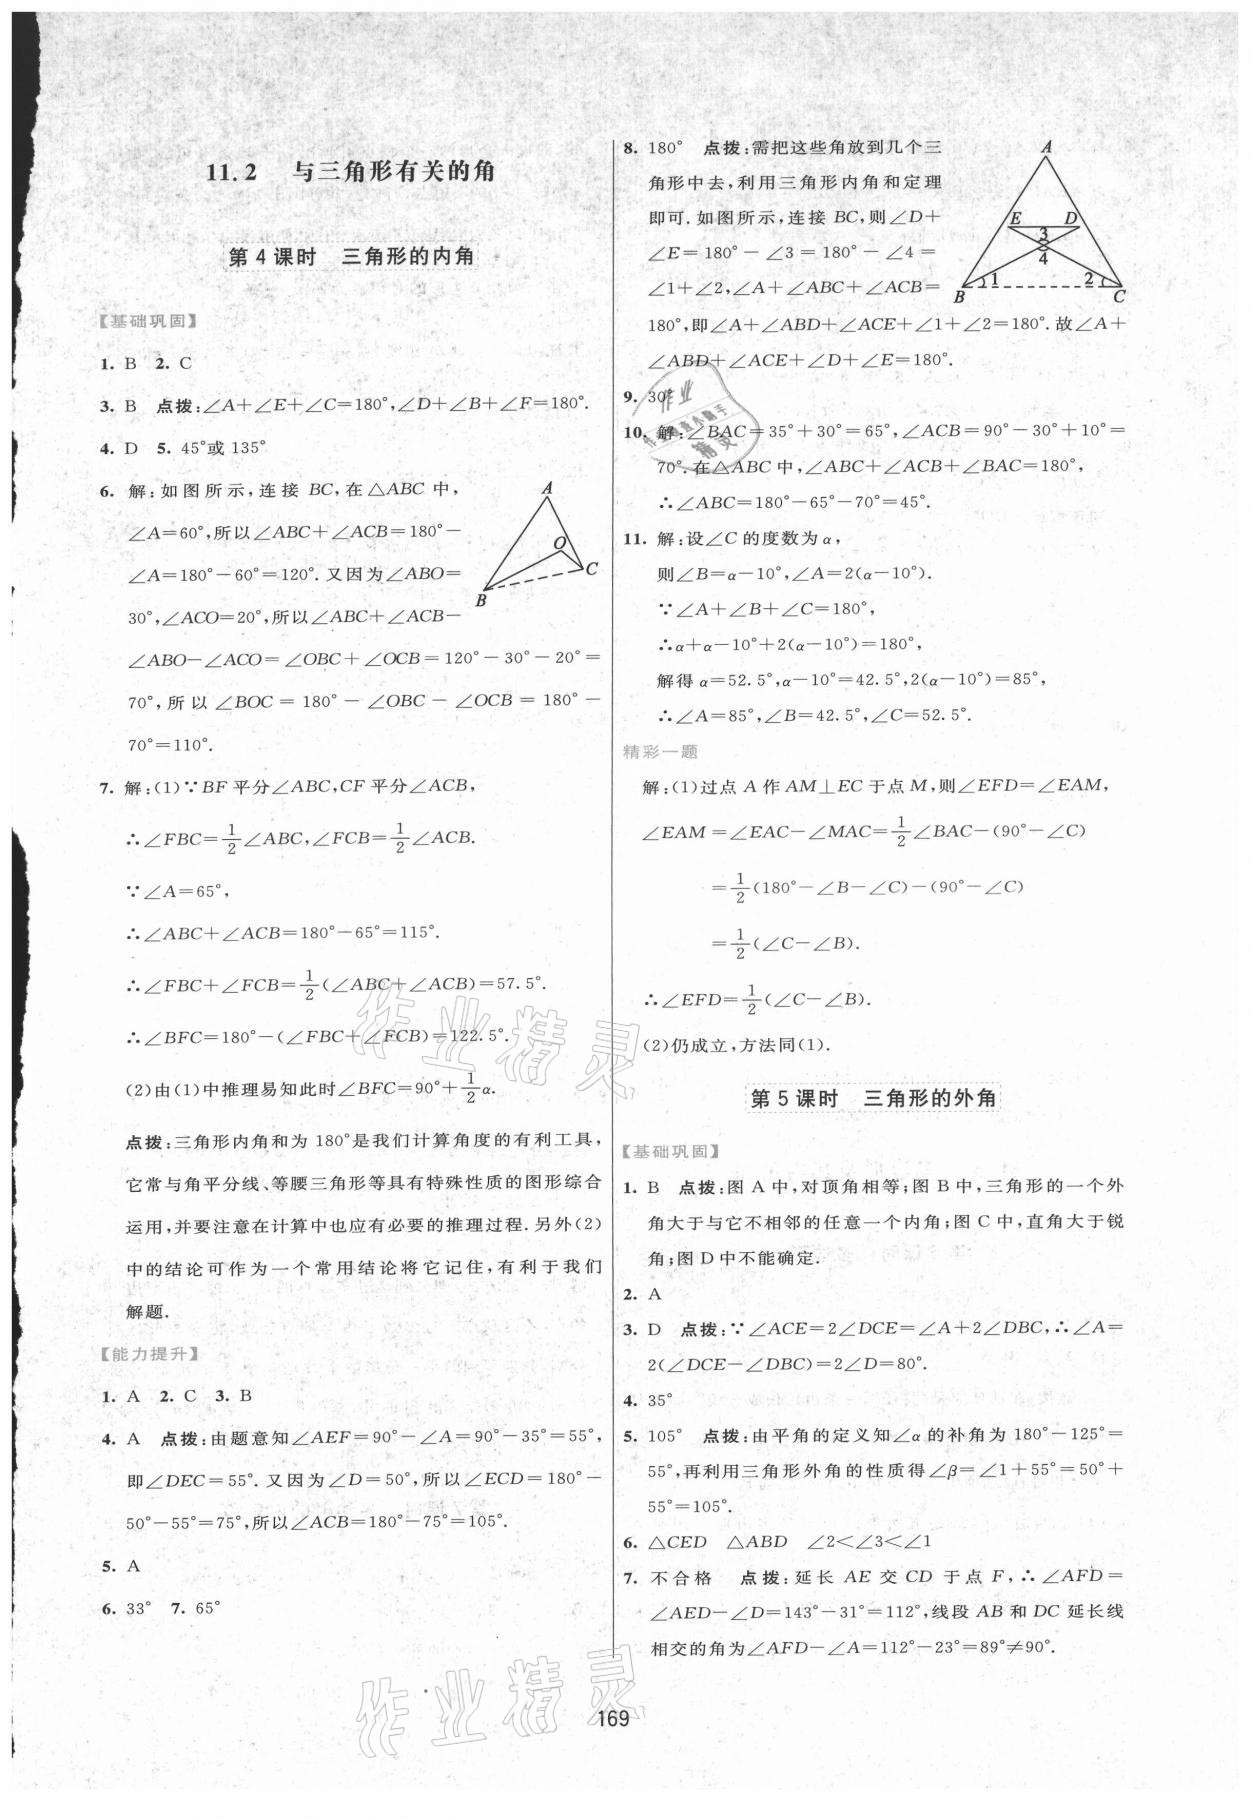 11.2 与三角形有关的角
第4课时 三角形的内角
【基础巩固】
1. B 2. C
3. B 点拨:∠A+∠E+∠C=180°,∠D+∠B+∠F=180°.
4. D 5. 45°或135°
6. 解:如图所示,连接BC,在△ABC中,
∠A=60°,所以∠ABC+∠ACB=180°-
∠A=180°-60°=120°.又因为∠ABO=
30°,∠ACO=20°,所以∠ABC+∠ACB-
∠ABO-∠ACO=∠OBC+∠OCB=120°-30°-20°=
70°,所以∠BOC=180°-∠OBC-∠OCB=180°-
70°=110°.
A
O
C
B
7. 解:(1)∵BF平分∠ABC,CF平分∠ACB,
∴∠FBC=1/2∠ABC,∠FCB=1/2∠ACB.
∵∠A=65°,
∴∠ABC+∠ACB=180°-65°=115°.
∴∠FBC+∠FCB=1/2(∠ABC+∠ACB)=57.5°.
∴∠BFC=180°-(∠FBC+∠FCB)=122.5°.
(2)由(1)中推理易知此时∠BFC=90°+1/2α.
点拨:三角形内角和为180°是我们计算角度的有利工具,
它常与角平分线、等腰三角形等具有特殊性质的图形综合
运用,并要注意在计算中也应有必要的推理过程.另外(2)
中的结论可作为一个常用结论将它记住,有利于我们
解题.
【能力提升】
1. A 2. C 3. B
4. A 点拨:由题意知∠AEF=90°-∠A=90°-35°=55°,
即∠DEC=55°.又因为∠D=50°,所以∠ECD=180°-
50°-55°=75°,所以∠ACB=180°-75°=105°.
5. A
6. 33° 7. 65°
8. 180° 点拨:需把这些角放到几个三
角形中去,利用三角形内角和定理
即可.如图所示,连接BC,则∠D+
∠E=180°-∠3=180°-∠4=
∠1+∠2,∠A+∠ABC+∠ACB=
180°,即∠A+∠ABD+∠ACE+∠1+∠2=180°.故∠A+
∠ABD+∠ACE+∠D+∠E=180°.
A
E D
3
4
1 2
B C
9. 30°
10. 解:∠BAC=35°+30°=65°,∠ACB=90°-30°+10°=
70°.在△ABC中,∠ABC+∠ACB+∠BAC=180°,
∴∠ABC=180°-65°-70°=45°.
11. 解:设∠C的度数为α,
则∠B=α-10°,∠A=2(α-10°).
∵∠A+∠B+∠C=180°,
∴α+α-10°+2(α-10°)=180°,
解得α=52.5°,α-10°=42.5°,2(α-10°)=85°,
∴∠A=85°,∠B=42.5°,∠C=52.5°.
精彩一题
解:(1)过点A作AM⊥EC于点M,则∠EFD=∠EAM,
∠EAM=∠EAC-∠MAC=1/2∠BAC-(90°-∠C)
=1/2(180°-∠B-∠C)-(90°-∠C)
=1/2(∠C-∠B).
∴∠EFD=1/2(∠C-∠B).
(2)仍成立,方法同(1).
第5课时 三角形的外角
【基础巩固】
1. B 点拨:图A中,对顶角相等;图B中,三角形的一个外
角大于与它不相邻的任意一个内角;图C中,直角大于锐
角;图D中不能确定.
2. A
3. D 点拨:∵∠ACE=2∠DCE=∠A+2∠DBC,∴∠A=
2(∠DCE-∠DBC)=2∠D=80°.
4. 35°
5. 105° 点拨:由平角的定义知∠α的补角为180°-125°=
55°,再利用三角形外角的性质得∠β=∠1+55°=50°+
55°=105°.
6. △CED △ABD ∠2<∠3<∠1
7. 不合格 点拨:延长AE交CD于点F,∴∠AFD=
∠AED-∠D=143°-31°=112°,线段AB和DC延长线
相交的角为∠AFD-∠A=112°-23°=89°≠90°.
作业精灵
作业精灵
169